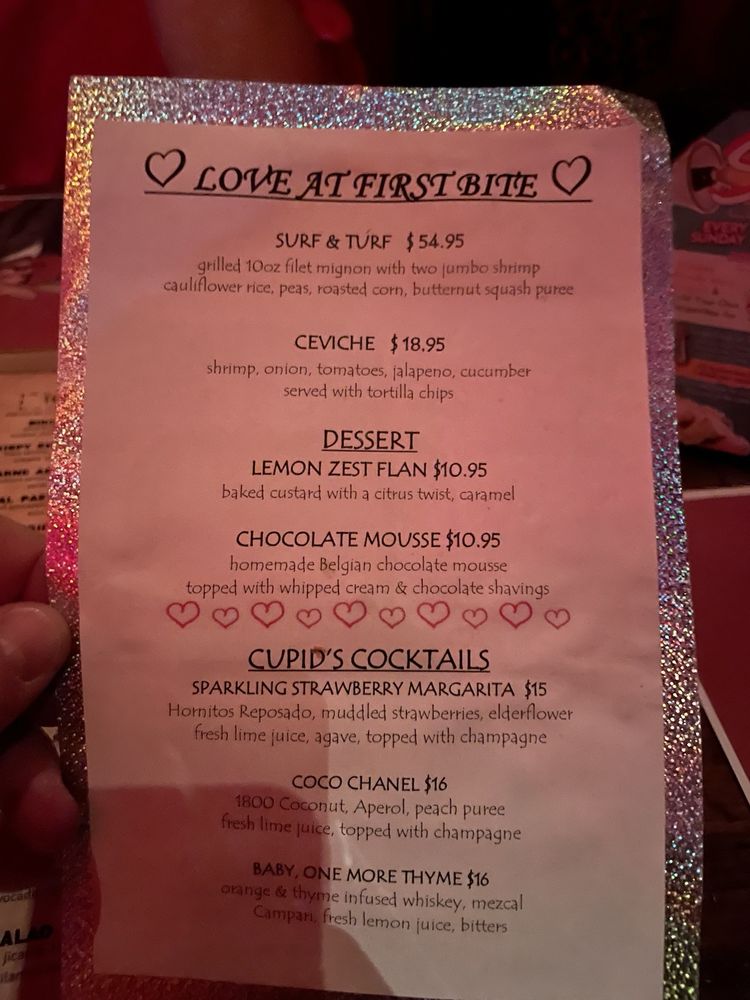 ♡ LOVE AT FIRST BITE ♡
SURF & TURF $54.95
grilled 10oz filet mignon with two jumbo shrimp
cauliflower rice, peas, roasted corn, butternut squash puree
CEVICHE $18.95
shrimp, onion, tomatoes, jalapeno, cucumber
served with tortilla chips
DESSERT
LEMON ZEST FLAN $10.95
baked custard with a citrus twist, caramel
CHOCOLATE MOUSSE $10.95
homemade Belgian chocolate mousse
topped with whipped cream & chocolate shavings
CUPID'S COCKTAILS
SPARKLING STRAWBERRY MARGARITA $15
Hornitos Reposado, muddled strawberries, elderflower
fresh lime juice, agave, topped with champagne
COCO CHANEL $16
1800 Coconut, Aperol, peach puree
fresh lime juice, topped with champagne
BABY, ONE MORE THYME $16
orange & thyme infused whiskey, mezcal
Campari, fresh lemon juice, bitters
EVERY
SUNDAY